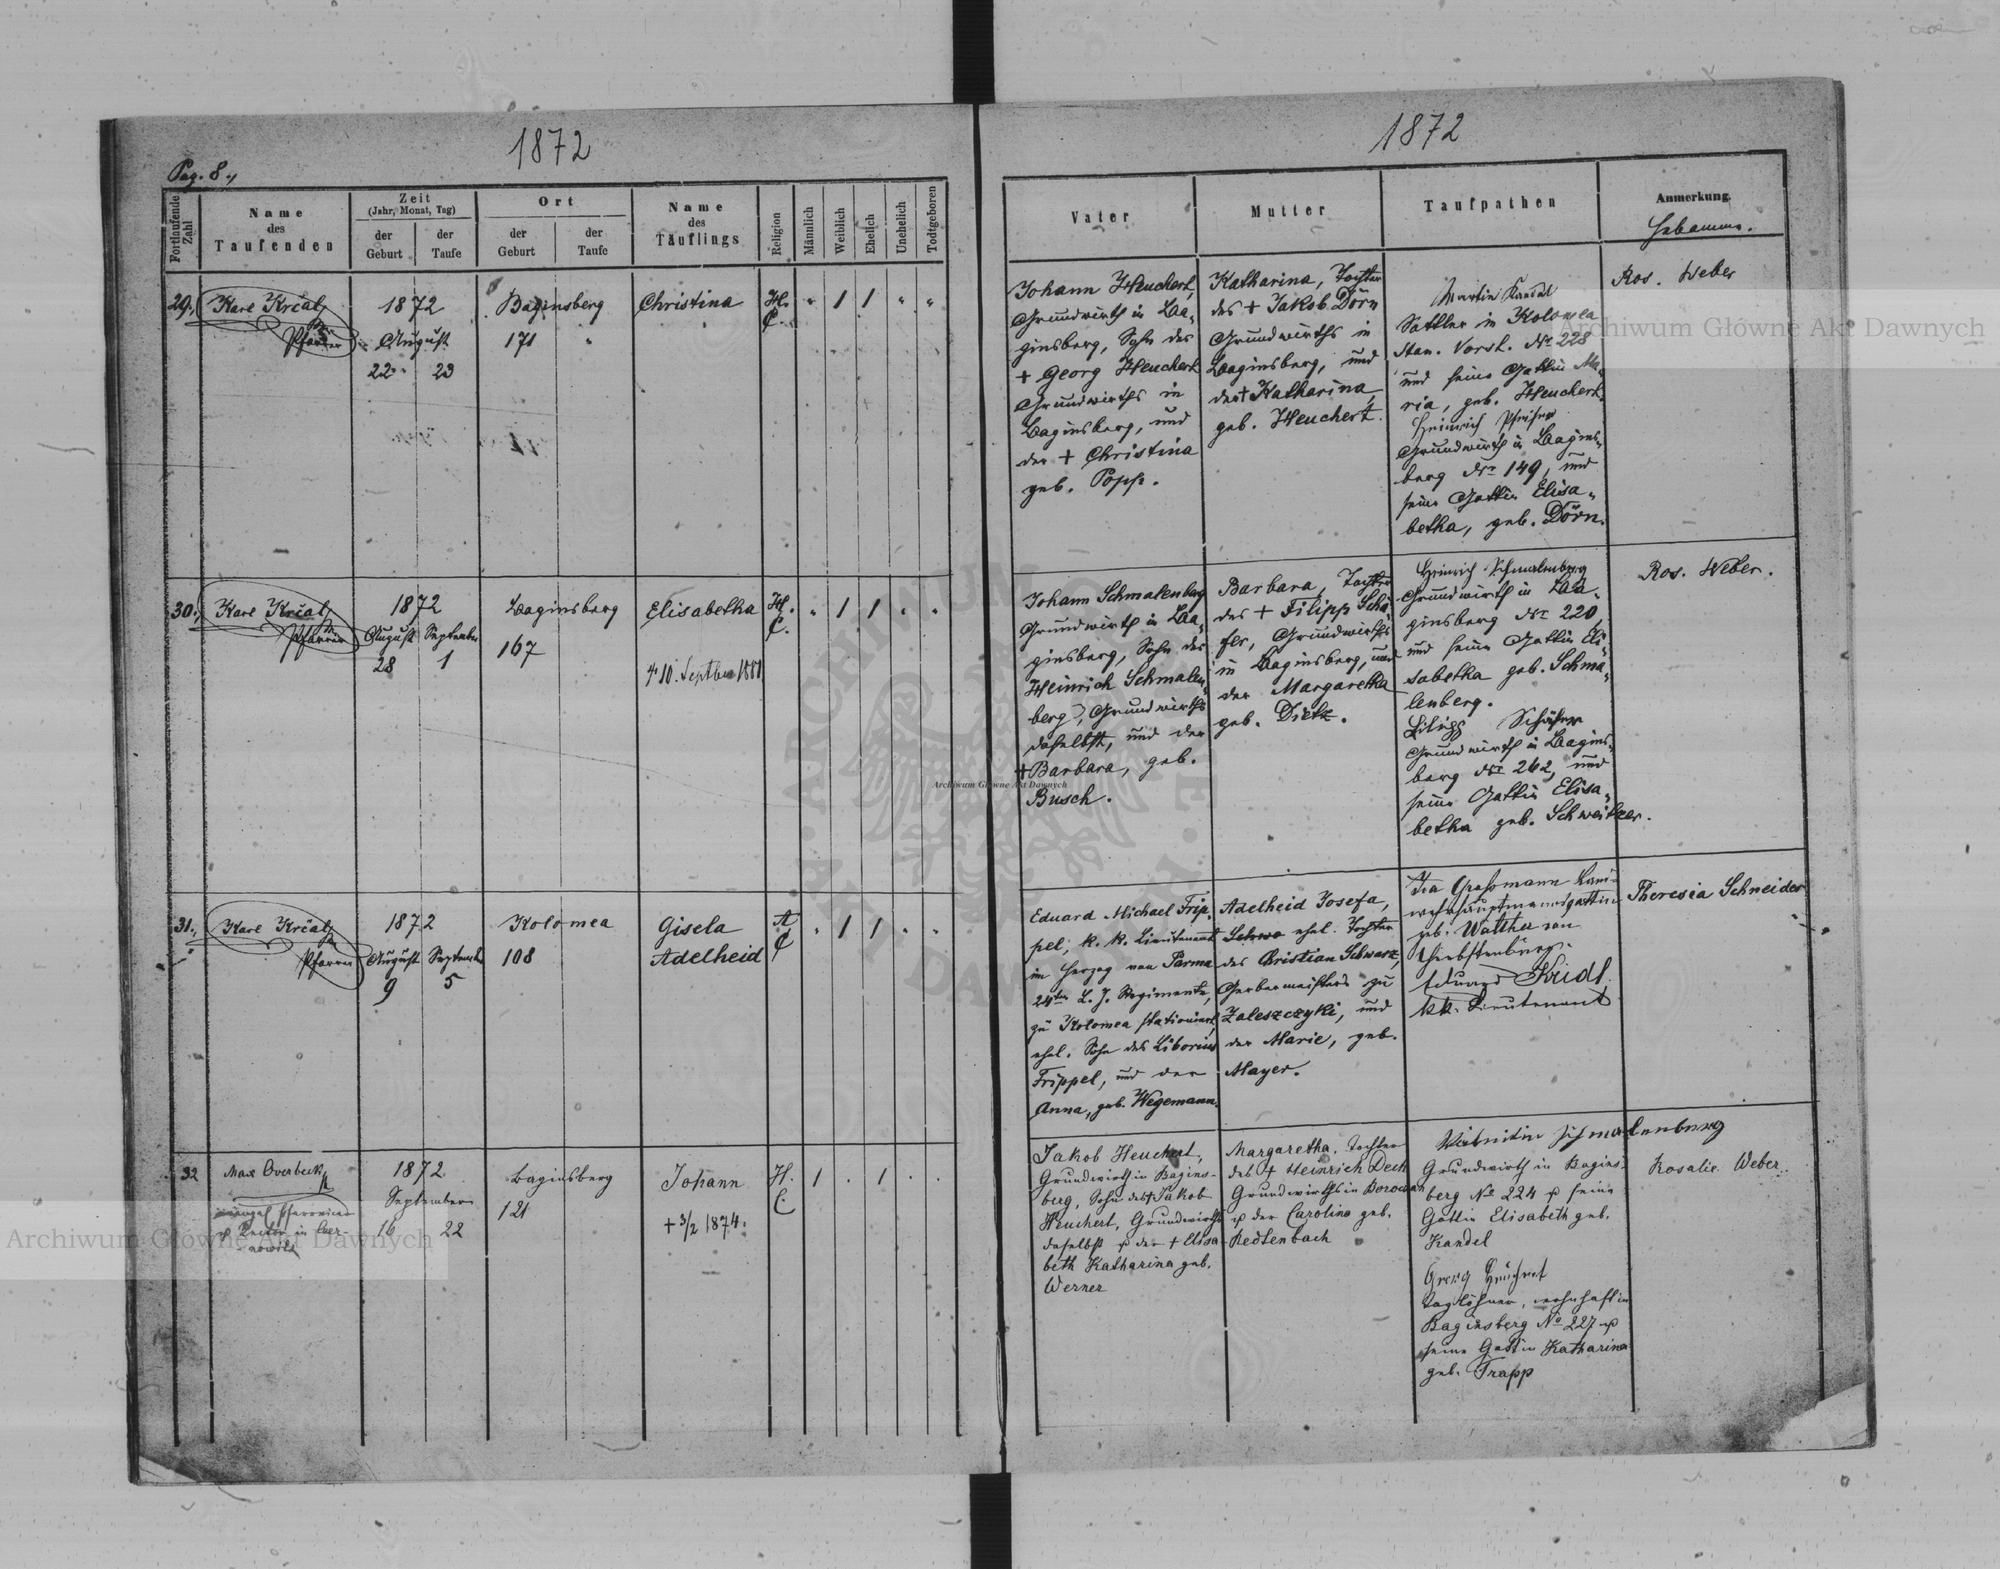 1872
1872
Pag. 8.,
Fortlaufende Zahl
Name des Taufenden
Zeit
(Jahr, Monat, Tag)
der Geburt
der Taufe
Ort
der Geburt
der Taufe
Name des Täuflings
Religion
Männlich
Weiblich
Ehelich
Unehelich
Todtgeboren
Vater
Mutter
Taufpathen
Anmerkung.
Hebamme.
29.,
Karl Krčal
Pfarrer
1872
August
22. 23
Baginsberg
171 "
Christina
H. C.
" 1 1 " "
Johann Heuchert,
Grundwirth in Ba-
ginsberg, Sohn des
+ Georg Heuchert
Grundwirths in
Baginsberg, und
der + Christina
geb. Popp.
Katharina, Tochter
des + Jakob Dörn
Grundwirths in
Baginsberg, und
der + Katharina,
geb. Heuchert.
Martin Kandel
Sattler in Kolomea
Stan. Vorst. No 228
und seine Gattin Ma-
ria, geb. Heuchert.
Heinrich Pfeifer
Grundwirth in Bagins-
berg No 149, und
seine Gattin Elisa-
betha, geb. Dörn.
Ros. Weber
30.,
Karl Krčal
Pfarrer
1872
August September
28 1
Baginsberg
167
Elisabetha
+ 10. Septber 1881
H. C.
" 1 1 . .
Johann Schmalenberg
Grundwirth in Ba-
ginsberg, Sohn des
Heinrich Schmalen-
berg, Grundwirths
daselbst, und der
+ Barbara, geb.
Busch.
Barbara, Tochter
des + Filipp Schä-
fer, Grundwirths
in Baginsberg, und
der Margaretha
geb. Dietz.
Heinrich Schmalenberg
Grundwirth in Ba-
ginsberg No 220,
und seine Gattin Eli-
sabetha geb. Schma-
lenberg.
Filipp Schäfer
Grundwirth in Bagins-
berg No 262, und
seine Gattin Elisa-
betha geb. Schweitzer.
Ros. Weber.
31.,
Karl Krčal
Pfarrer
1872
August September
9 5
Kolomea
108
Gisela
Adelheid
A C
. 1 1 . .
Eduard Michael Frip-
pel, k. k. Lieutenant
im Herzog von Parma
24ten L. J. Regimente,
zu Kolomea stationiert,
ehel. Sohn des Liborius
Frippel, und der
Anna, geb. Wegemann.
Adelheid Josefa,
Schwa ehel. Tochter
des Christian Schwarz,
Gerbermeisters zu
Zaleszczyki, und
der Marie, geb.
Mayer.
Ida Grossmann Land-
wehrhauptmannsgattin
geb. Walther von
Herbstenburg.
Eduard
kk. Lieutenant
Theresia Schneider
32
Max Overbeck
evangel Pfarrvicar
& Rector in Czer-
nowitz
1872
September
16 22
Baginsberg
121
Johann
+ 3/2 1874.
H. C
1 . 1 . .
Jakob Heuchert,
Grundwirth in Bagins-
berg, Sohn des + Jakob
Heuchert, Grundwirths
daselbst & der + Elisa-
beth Katharina geb.
Werner
Margaretha, Tochter
des + Heinrich Dech
Grundwirths in Borowan
& der Carolina geb.
Redlenbach
Valentin Schmalenberg
Grundwirth in Bagins-
berg No 224 & seine
Gattin Elisabeth geb.
Kandel
Georg Heuchert
Taglöhner, wohnhaft in
Baginsberg No 227 &
seine Gattin Katharina
geb. Trapp
Rosalie Weber.
Archiwum Główne Akt Dawnych
Archiwum Główne Akt Dawnych
Archiwum Główne Akt Dawnych